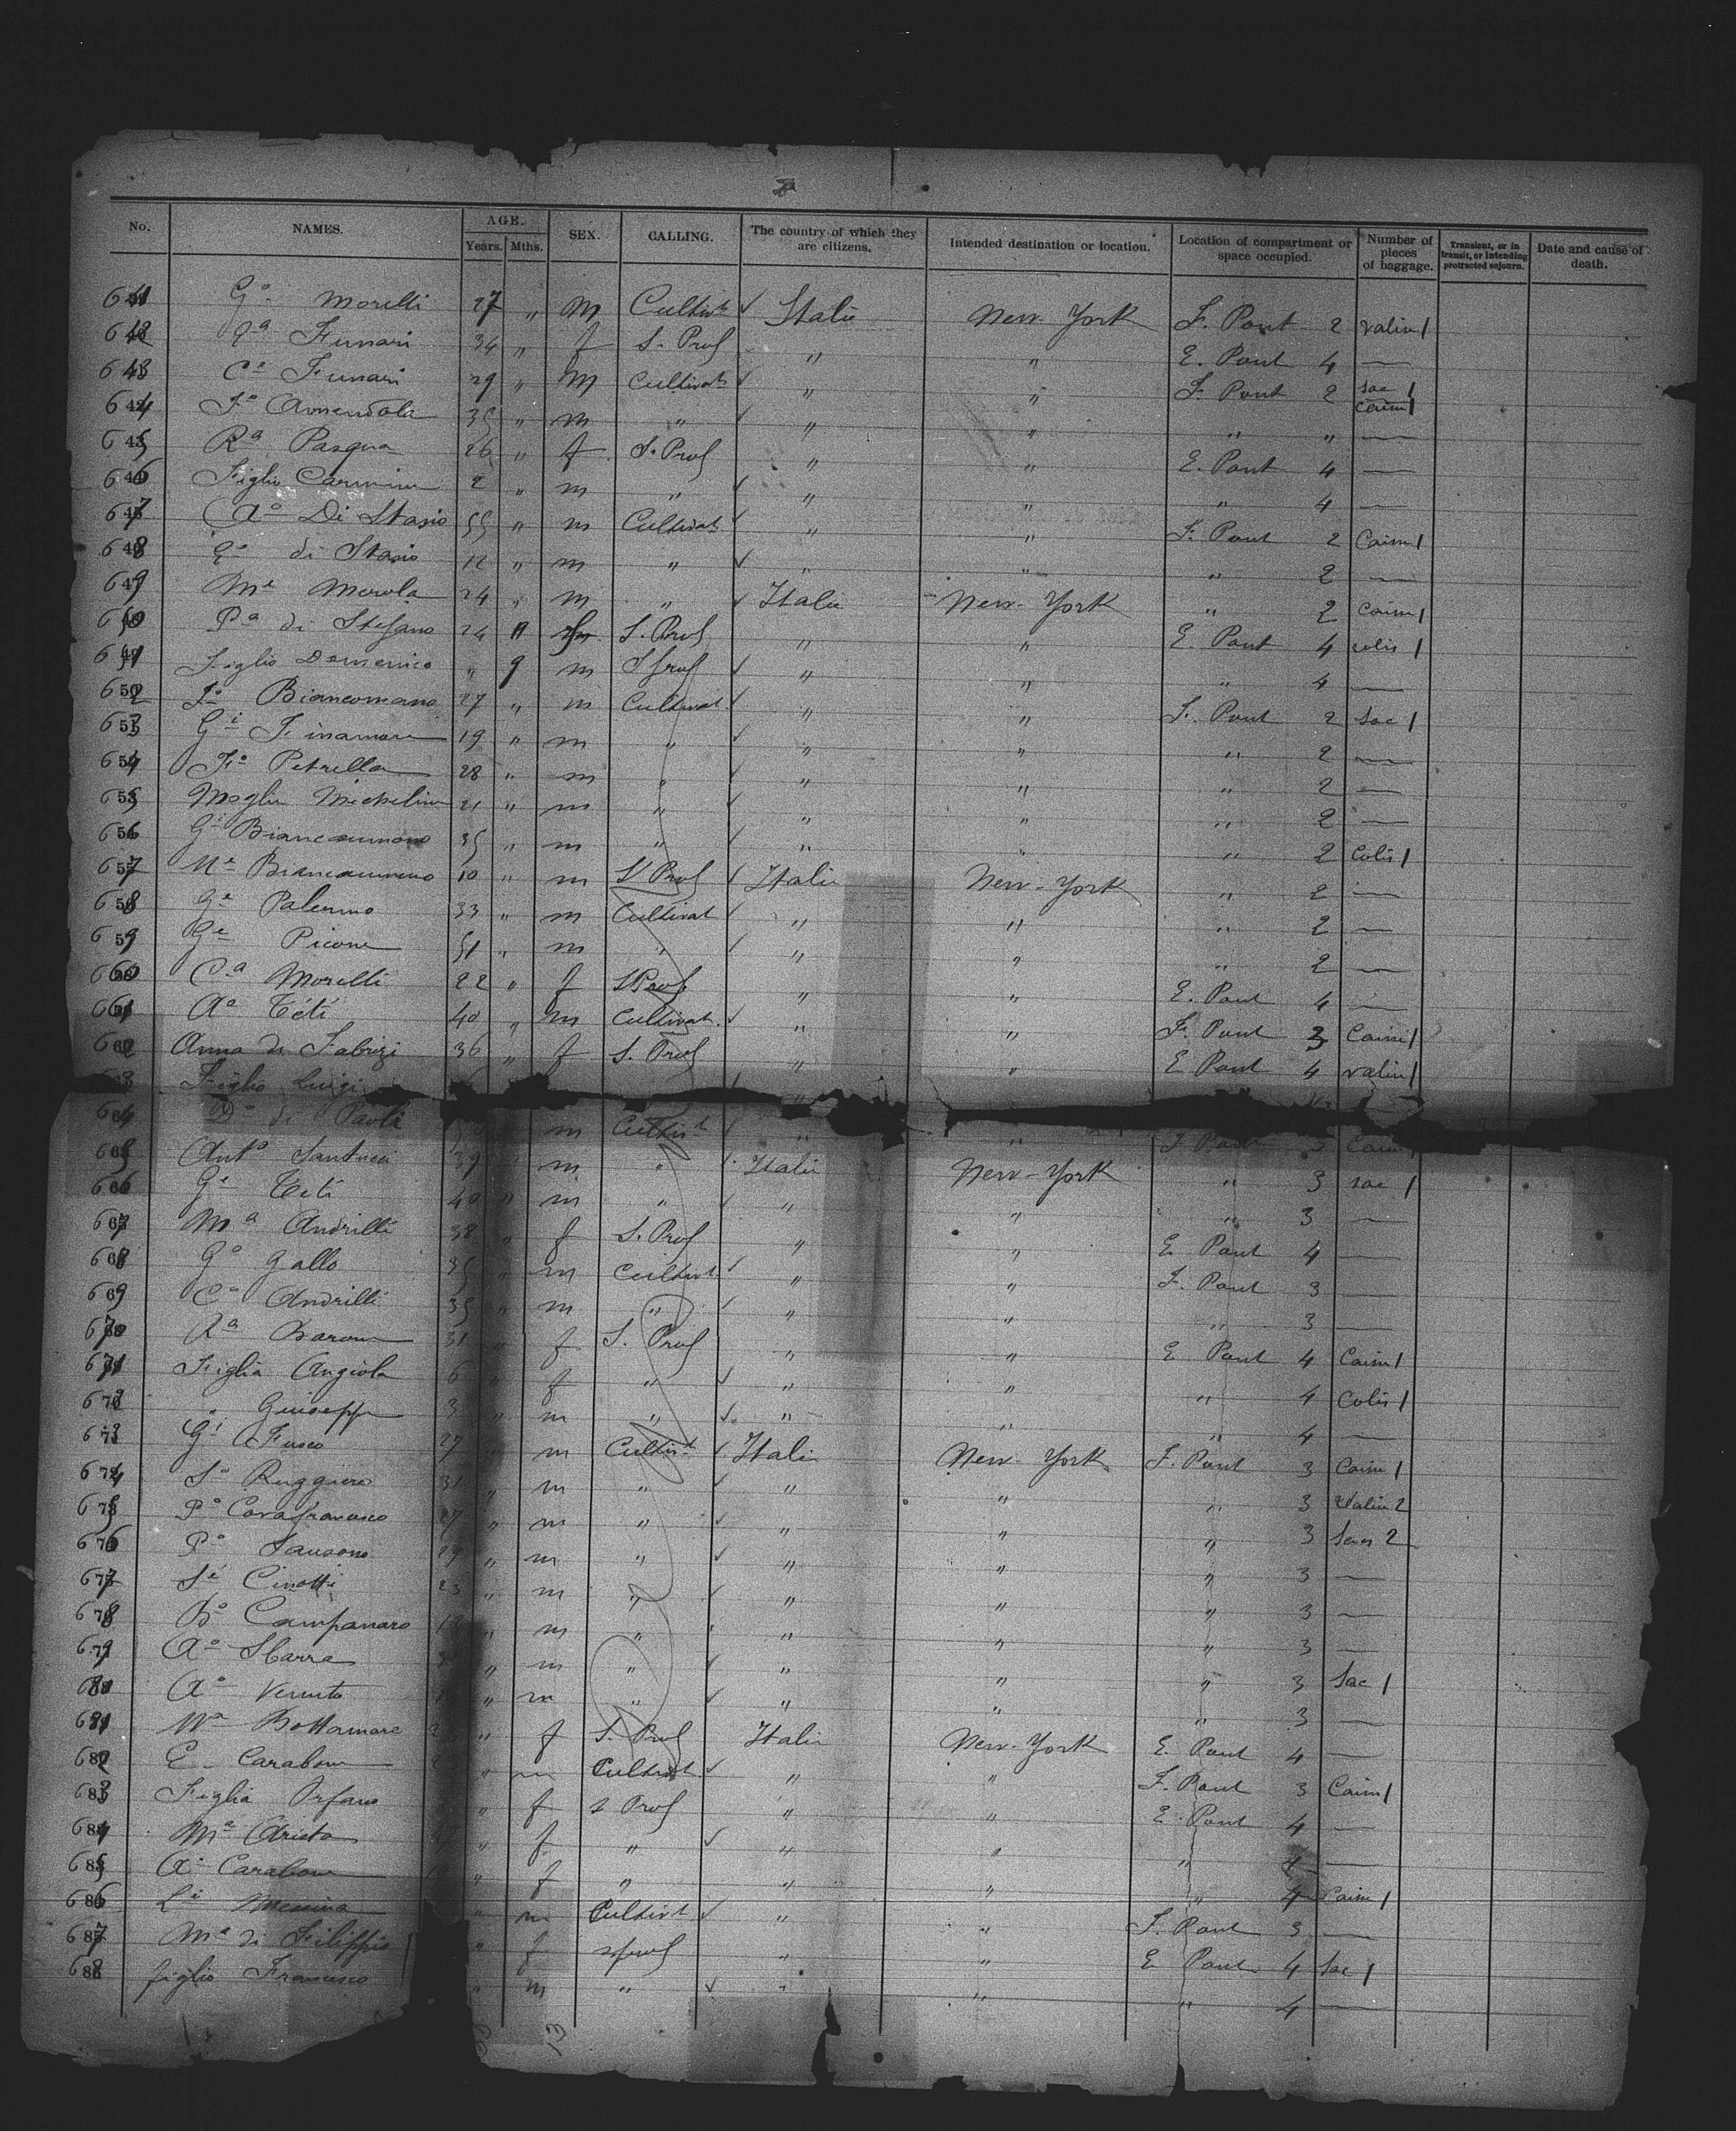 No. NAMES. AGE. Years. Mths. SEX. CALLING. The country of which they are citizens. Intended destination or location. Location of compartment or space occupied. Number of pieces of baggage. Transient, or in transit, or intending protracted sojourn. Date and cause of death.
641 Gº Morelli 27 " M Cultivt ✓ Italie New-York F. Pont 2 valise 1
642 Funari 34 " f S. Prof " " E. Pont 4 —
643 Cº Funari 29 " M Cultivat ✓ " " F. Pont 2 sac 1 caisse 1
644 Fº Amendola 35 " m " ✓ " " " " —
645 Rª Pasqua 26 " f S. Prof " " E. Pont 4 —
646 Figlio Carmine 2 " m " ✓ " " " 4 —
647 Aº Di Stasio 55 " m Cultivat ✓ " " F. Pont 2 Caisse 1
648 di Stasio 12 " m " ✓ " " " 2 —
649 Mº Merola 24 " m " ✓ Italie New-York " 2 Caisse 1
650 Pª di Stefano 24 " f S. Prof " " E Pont 4 colis 1
651 Figlio Domenico " 9 m S prof ✓ " " " 4 —
652 Fº Biancomano 27 " m Cultivat ✓ " " F. Pont 2 Sac 1
653 Gi Finamore 19 " m " ✓ " " " 2 —
654 Fº Petrella 28 " m " ✓ " " " 2 —
655 Moglie Michelina 21 " m " ✓ " " " 2 —
656 Gi Biancaumano 35 " m " ✓ " " " 2 Colis 1
657 Biancaumano 10 " m S Prof ✓ Italie New-York " 2 —
658 Ge Palermo 33 " m Cultivat ✓ " " " 2 —
659 Ge Picone 51 " m " ✓ " " " 2 —
660 Cª Morelli 22 " f S Prof " " E. Pont 4 —
661 Aº Teti 40 " m Cultivat ✓ " " F. Pont 3 Caisse 1
662 Anna di Fabrizi 36 " f S. Prof " " E Pont 4 valise 1
663 Figlio Luigi
664 Dº di Paola m Cultivt ✓ " " F Pont 3 Caisse 1
665 Antº Santucci 39 " m " ✓ Italie New-York " 3 sac 1
666 Ge Teti 40 " m " ✓ " " " 3 —
667 Mª Andrilli 38 " f S. Prof " " E Pont 4 —
668 Gº Gallo 35 " m Cultivt ✓ " " F. Pont 3 —
669 Cº Andrilli 35 " m " ✓ " " " 3 —
670 Rª Barone 31 " f S. Prof " " E Pont 4 Caisse 1
671 Figlia Angiola 6 " f " ✓ " " " 4 Colis 1
672 " Giuseppe 3 " m " ✓ " " " 4 —
673 Gi Fusco 27 " m Cultivt ✓ Italie New-York F. Pont 3 Caisse 1
674 Sº Ruggiero 31 " m " ✓ " " " 3 Valise 2
675 Pº Casafrancesco 27 " m " ✓ " " " 3 Sacs 2
676 Pº Sansone 29 " m " ✓ " " " 3 —
677 Se Cinotti 23 " m " ✓ " " " 3 —
678 Bº Campanaro " m " " " " 3 —
679 Aº Sbarra " m " ✓ " " " 3 Sac 1
680 Aº Venuto " m " ✓ " " " 3 —
681 Mª Bottamare " f S. Prof Italie New-York E. Pont 4 —
682 E Carabone " m Cultivat ✓ " " F. Pont 3 Caisse 1
683 Figlia Orfana " f s Prof " " E Pont 4 —
684 Mª Arista " f " ✓ " " " 4 —
685 Aª Carabone " f " " " " 4 Caisse 1
686 Li Messina " m Cultivt ✓ " " F. Pont 3 —
687 Mª di Filippis " f s prof " " E Pont 4 Sac 1
688 figlio Francesco " m " ✓ " " " 4 —